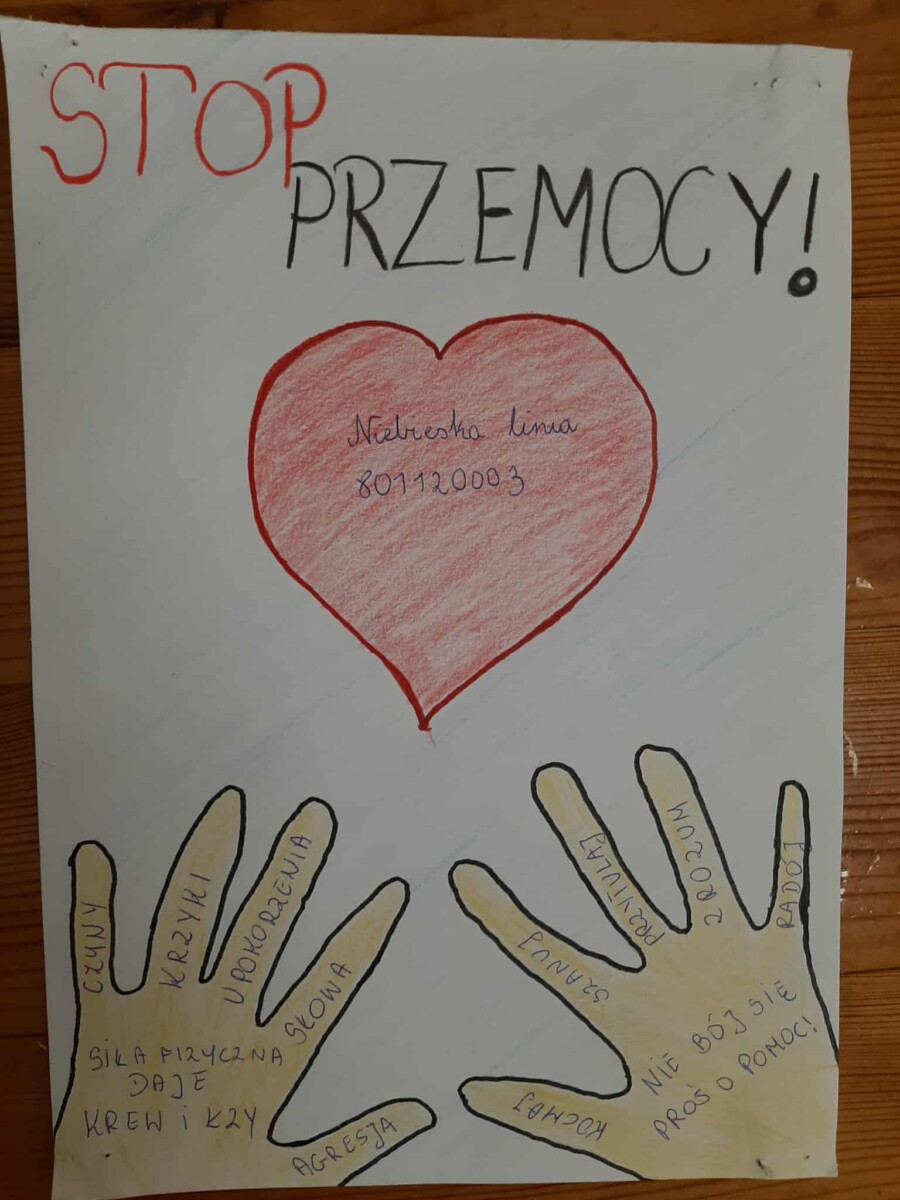 STOP
PRZEMOCY!
Niebieska linia
801120003
CZYNY
KRZYKI
UPOKORZENIA
SŁOWA
AGRESJA
SIŁA FIZYCZNA
DAJE
KREW i ŁZY
KOCHAJ
SZANUJ
PRZYTULAJ
ZROZUM
RADOŚ
NIE BÓJ SIĘ
PROŚ O POMOC!